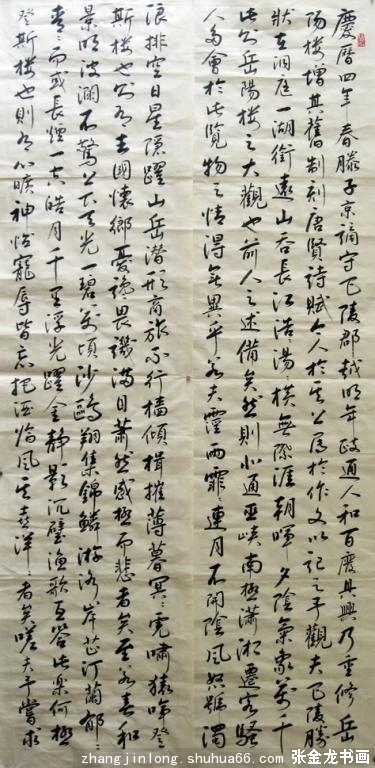 慶曆四年春滕子京謫守巴陵郡越明年政通人和百廢具興乃重修岳
陽樓增其舊制刻唐賢詩賦今人於其上属於作文以記之予觀夫巴陵勝
狀在洞庭一湖銜遠山吞長江浩湯橫無際涯朝暉夕陰氣象萬千
此則岳陽樓之大觀也前人之述備矣然則北通巫峽南極瀟湘遷客騷
人多會於此覽物之情得無異乎若夫霪雨霏〻連月不開陰風怒號濁
浪排空日星隱躍山岳潛形商旅不行檣傾楫摧薄暮冥〻虎嘯猿啼登
斯樓也則有去國懷鄉憂讒畏譏滿目蕭然感極而悲者矣至若春和
景明波瀾不驚上下天光一碧萬頃沙鷗翔集錦鱗游泳岸芷汀蘭郁〻
青〻而或長煙一空皓月千里浮光躍金靜影沉璧漁歌互答此樂何極
登斯樓也則有心曠神怡寵辱皆忘把酒臨風其喜洋〻者矣嗟夫予嘗求
zhangjinlong.shuhua66.com 张金龙书画